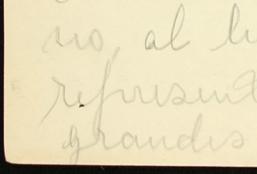 no, al
represent
grandes